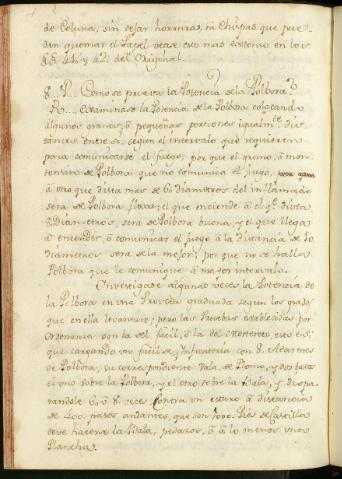 de Coluna, sin dejar horrura, ni Chispas que puedan quemar el Papel vease esto mas extenso en los
§§. 41, y 42. del Original.
8. P. Como se prueva la Potencia de la Polbora?
R. Examinase la Potencia de la Polbora colocando
algunos granos, ó pequeñas porciones igualmte. distantes entre si, segun el intervalo que requieren
para comunicarse el fuego; por que el grano, ó montoncito de Polbora que no comunica el fuego,
á otro que dista mas de 6 diametros del inflamado
sera de Polbora floxa; el que enciende á el qe. dista
8 Diametros, sera de Polbora buena, y el que llega
á encender, ó comunicar el fuego á la distancia de 10
diametros sera de la mejor; por que no se halla
Polbora que le comunique á mayor intervalo.
Investigase algunas veces la Potencia de
la Polbora en una Proveta graduada segun los grados
que en ella levantare; pero las Pruebas establecidas por
Ordenanza son la del fusil, ó la del Morterete, esto es;
que cargando un fusil de Infanteria con 8. Adarmes
de Polbora, su correspondiente Vala de Plomo, y dos tacos
el uno sobre la Polbora, y el otro sobre la Vala, y disparandole 6, ó 8. veces contra un
á distancia
de 400 pasos andantes, que son 1000. Pies de Castilla
deve hacerse la Vala, pedazos, ó á lo menos una
Plancha.